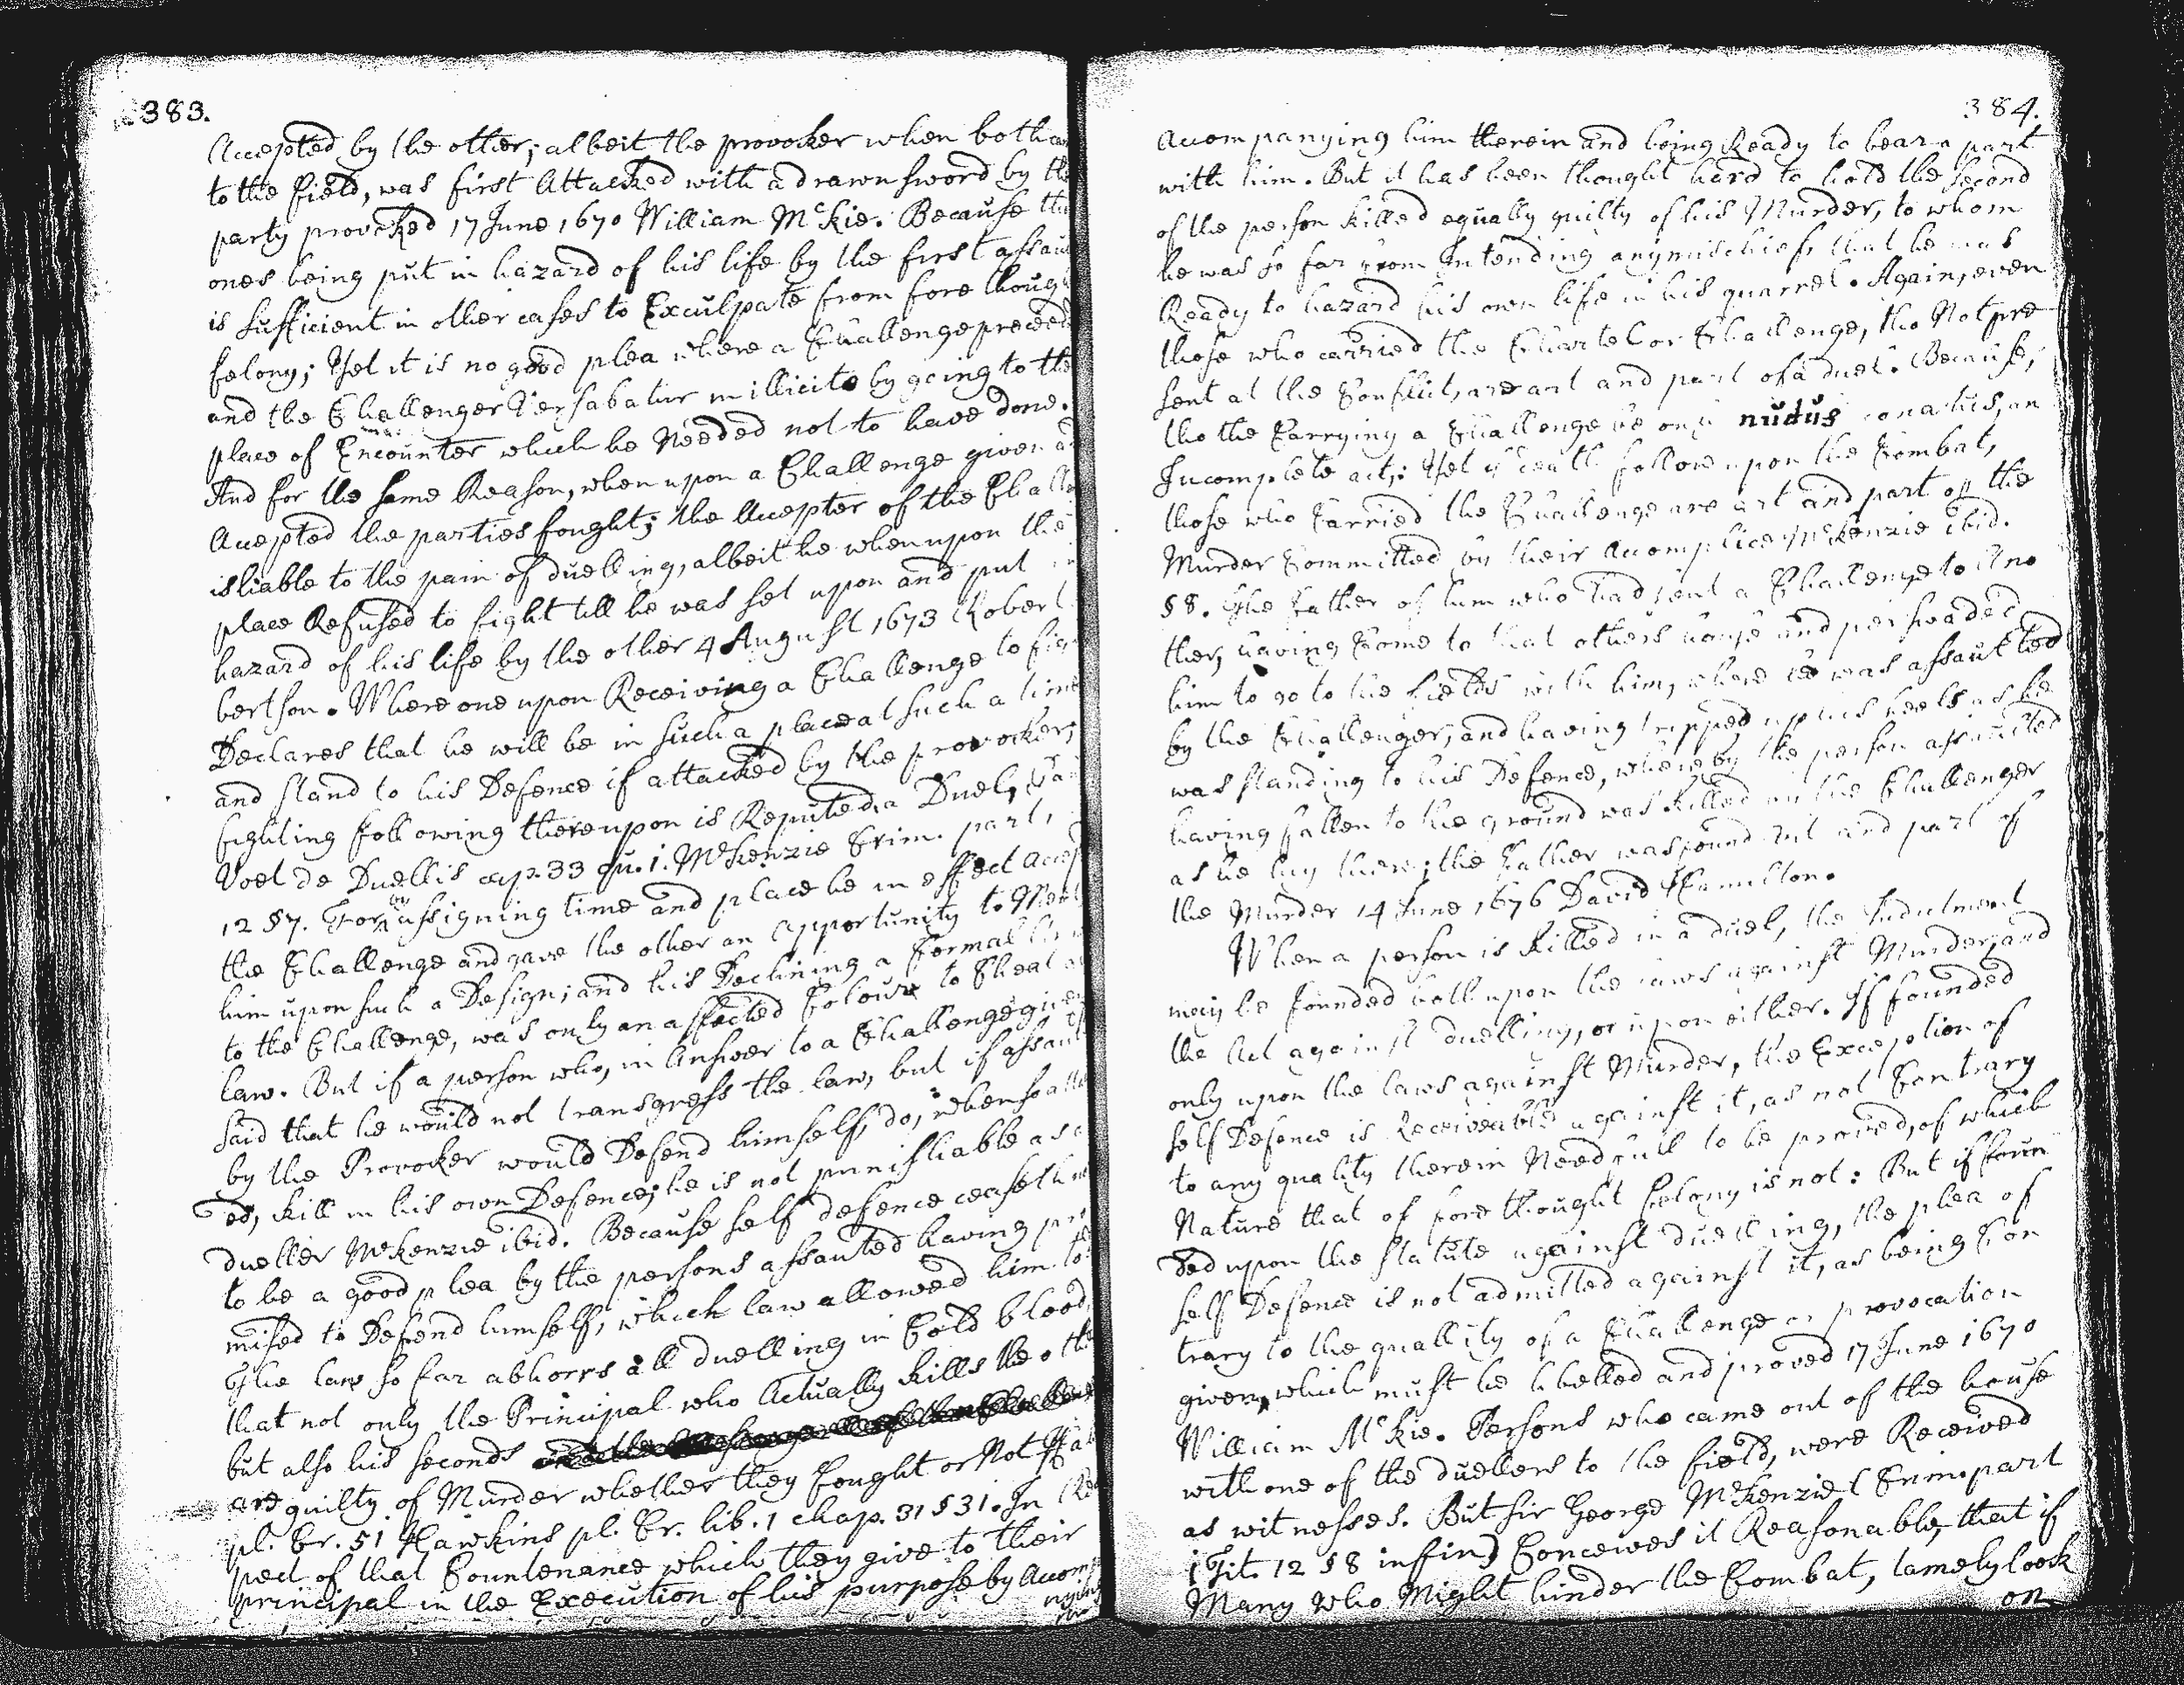 383.
Accepted by the other; albeit the provoker when both
to the field, was first Attacked with a drawn sword by the
party provoked 17 June 1670 William McKie. Because the
ones being put in hazard of his life by the first assau
is sufficient in other cases to Exculpate from fore thoug
felony; Yet it is no good plea where a Challenge preceed
and the Challenger Versabatur in illicito by going to the
place of Encounter which he Needed not to have done.
And for the same Reason, when upon a Challenge given
Accepted the parties fought; the Accepter of the Challe
is liable to the pain of duelling, albeit he when upon the
place Refused to fight till he was set upon and put
hazard of his life by the other 4 August 1673 Robert
bertson. Where one upon Receiving a Challenge to fig
Declares that he will be in such a place at such a time
and stand to his Defence if attacked by the provoker;
fighting following thereupon is Reputed a Duel,
Voet de Duellis cap. 33 qu. 1. McKenzie Crim. part,
12 §7. For by assigning time and place he in effect accep
the Challenge and gave the other an Opportunity to Meet
him upon such a Design; and his Declining a formal
to the Challenge, was only an affected Colour to Cheat
law. But if a person who, in Answer to a Challenge given
said that he would not transgress the law, but if assau
by the Provoker would Defend himself, do, when so atta
ed, kill in his own Defence; he is not punishable as
dueller McKenzie ibid. Because self defence ceaseth
to be a good plea by the persons assauted having pro
mised to Defend himself, which law allowed him to
The law so far abhorrs all duelling in Cold blood,
that not only the Principal who Actually kills the oth
but also his seconds
are guilty of Murder whether they fought or Not
pl. Cr. 51 Hawkins pl. Cr. lib. 1 chap. 31 §31. In Res
pect of that Countenance which they give to their
principal in the Execution of his purpose by Accom
384.
Accompanying him therein and being Ready to bear a part
with him. But it has been thought hard to hold the second
of the person killed equally guilty of his Murder, to whom
he was so far from Intending any mischief, that he was
Ready to hazard his own life in his quarrel. Again, even
those who carried the Chartel or Challenge, tho Not pre
sent at the Conflict, are art and part of a duel. Because,
tho the Carrying a Challenge be only nudus conatus, an
Incomplete act; Yet if death follow upon the Combat,
those who Carried the Challenge are art and part of the
Murder Committed by their Accomplice McKenzie ibid.
§8. The father of him who had sent a Challenge to Ano
ther, having Come to that others house and perswaded
him to go to the fields with him, where he was assaulted
by the Challenger; and having tripped up his heels as he
was standing to his Defence, whereby the person assaulted
having fallen to the ground was killed by the Challenger
as he lay there; the Father was found art and part of
the Murder 14 June 1676 David Hamilton.
When a person is killed in a duel, the Indictment
may be founded both upon the laws against Murder, and
the Act against duelling, or upon either. If founded
only upon the laws against Murder, the Exception of
self Defence is Receiveable against it, as not Contrary
to any quality therein Needfull to be proved, of which
Nature that of fore thought felony is not: But if foun
ded upon the statute against duelling, the plea of
self Defence is not admitted against it, as being Con
trary to the quallity of a Challenge or provocation
given, which must be libelled and proved 17 June 1670
William McKie. Persons who came out of the house
with one of the duellers to the field, were Received
as witnesses. But Sir George McKenzie (Crim. part
1 Tit. 12 §8 in fin) Conceives it Reasonable, that if
Many who Might hinder the Combat, tamely look
on